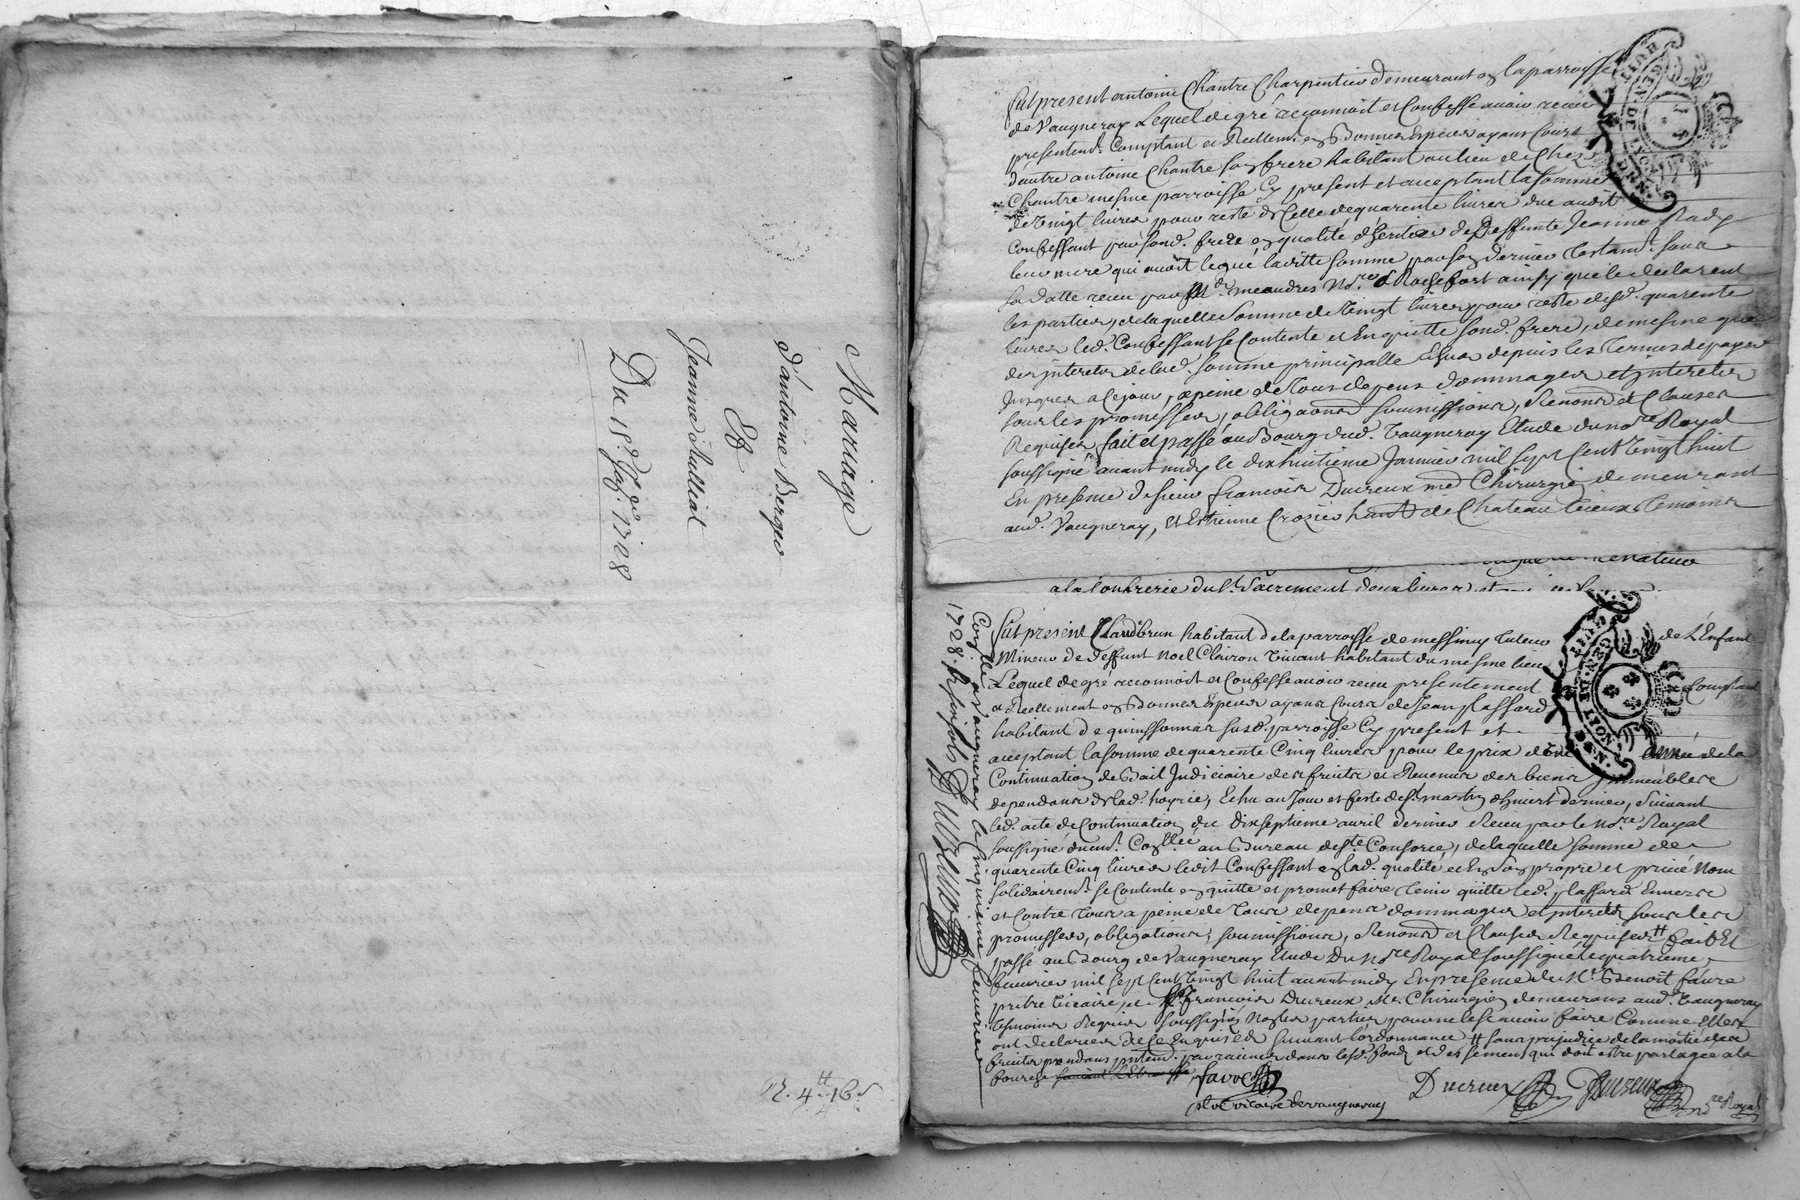 Mariage
d'antoine Berger
Et
Jeanne Julliat
Du 18e Janv. 1728
R. 4tt 16s
Fut present antoine Chantre Charpentier demeurant en la parroisse
de Vaugneray Lequel de gré a reconnoit et Confesse avoir receu
presentemt. Comptant et Reellemt. en Bonnes Especes ayans Cours
d'autre antoine Chantre son frere habitant au lieu de Chez
Chantre mesme parroisse Cy present et acceptant la somme
de Vingt livres pour reste de Celle de quarente livres due audit
Confessant par sond. frere en qualité d'heritier de Deffunte Jeanne
leur mere qui avoit legué laditte somme par son dernier Testamt. sous
sa datte receu par Me. meandres No.re a Rochefort ainsy que le declarent
les parties, de laquelle somme de Vingt livres pour reste desd. quarente
livres led. Confessant se Contente et En quitte sond. frere, de mesme que
des jnterets de lad. somme principalle Echus depuis les Termes de payer
jusques a Ce jour, a peine de Tous depens dommages et jnterets
sous les promesses, obligaons soumissions, Renons et Clauses
Requises fait et passé au Bourg dud. Vaugneray Etude du no.re Royal
soussigné avant midy le dixhuitieme Janvier mil sept Cent Vingt huit
En presence de sieur francois Ducreux me Chirurgien demeurant
aud. Vaugneray, et Estienne Crozier hant. de Chateau Vieux temoins
HUIT
GEN. DE LYON
a la Confrerie du St. Sacrement deux livres et
Fut present Claud brun habitant de la parroisse de messimy tuteur de L'Enfant
Mineur de deffunt Noel Clairon Vivant habitant du mesme lieu
Lequel de gré a reconnoit et Confesse avoir receu presentement Comptant
et Reellement en Bonnes Especes ayans Cours de Jean plassard
habitant de quinssonnas susd. parroisse Cy present et
acceptant la somme de quarente Cinq livres pour le prix d'une année de la
Continuation de Bail Judiciaire des fruits et Revenus des biens jmmeubles
dependans de lad. hoyrie, Echu au Jour et feste de St. martin d'hiver dernier, suivant
led. acte de Continuation du dixseptieme avril dernier Receu par le No.re Royal
soussigné au Bureau de Ste. Consorce, de laquelle somme de
quarente Cinq livres ledit Confessant en lad. qualité et En son propre et privé Nom
solidairemt. se Contente en quitte et promet faire tenir quitte led. plassard Envers
et Contre Tous a peine de Tous depens dommages et jnterets sous les
promesses, obligations, soumissions, Renons et Clauses Requises tt fait Et
passé au Bourg de Vaugneray Etude du No.re Royal soussigné le quatrieme
fevrier mil sept Cent Vingt huit avant midy En presence de Mr. Benoit favre
prêtre Vicaire, et Sr francois Ducreux Me. Chirurgien demeurans aud. Vaugneray
temoins Requis soussignés Non les parties pour ne le scavoir faire Comme Elles
ont declarées de Ce Enquises suivant l'ordonnance tt sans prejudice de la moitié des
fruits pendans par racines dans lesd. fonds et des semens qui doit estre partagée a la
favre
ptre Vicaire de vaugneray
Ducreux
Ducreux
n.re Royal
GEN. DE LYON
Con.llé a Vaugneray le cinquieme fevrier
1728. R. six sols
Ducreux